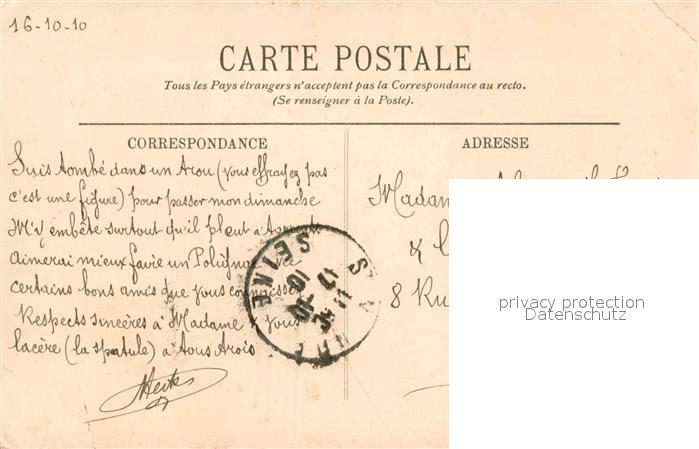 16-10-10
CARTE POSTALE
Tous les Pays étrangers n'acceptent pas la Correspondance au recto.
(Se renseigner à la Poste).
CORRESPONDANCE
ADRESSE
Suis tombé dans un trou (vous effrayez pas
c'est une figure) pour passer mon dimanche
M'y embête surtout qu'il pleut à torrents
Aimerai mieux faire un Polignac
certains bons amis que vous connaissez
Respects sincères à Madame & vous
lacère (la spatule) à tous trois
Madam
&
8 Ru
SEINE
17
10
privacy protection
Datenschutz